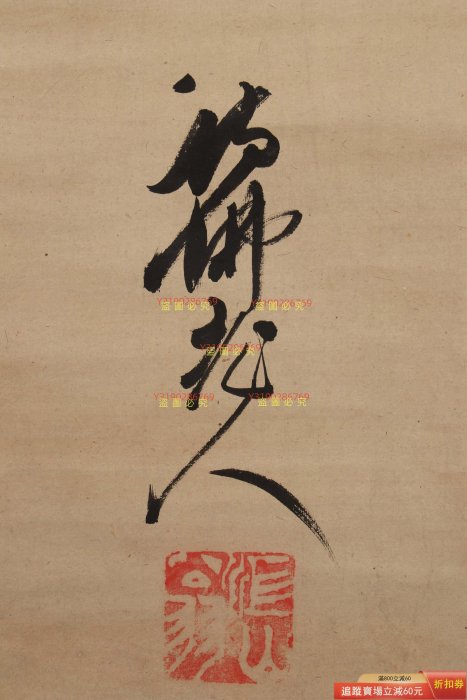 佛
老
人
Y3190286769 Y3190286769
盜圖必究 盜圖必究
Y3190286769
盜圖必究
Y3190286769 Y3190286769
盜圖必究 盜圖必究
滿800立減60
追蹤賣場立減60元
折扣券